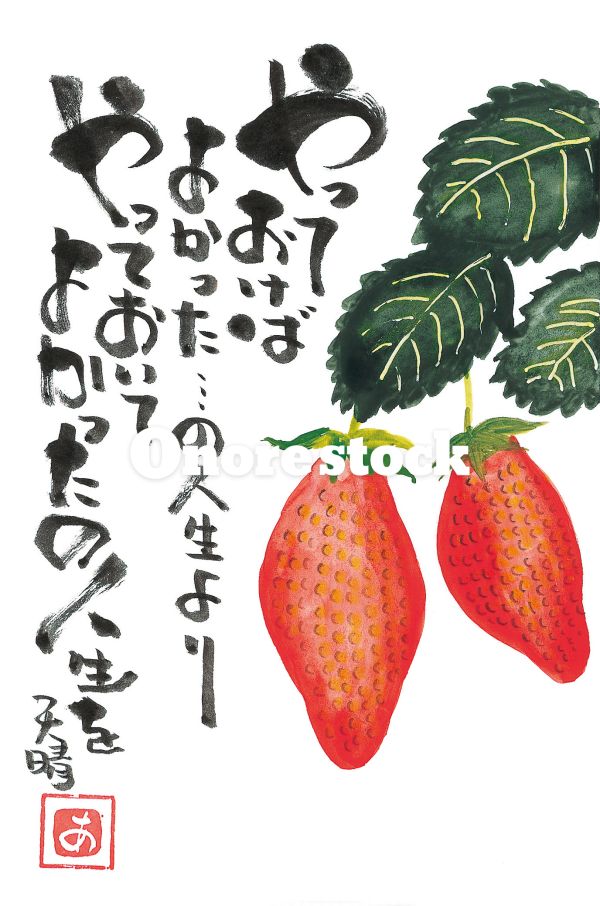 やって
おけば
よかった…の人生より
やっておいて
よかったの人生を
天晴
あ
Onorestock